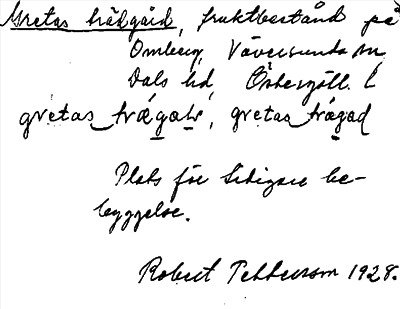 Gretas trädgård, fruktbestånd på
Omberg, Väversunda sn
Dals hd, Östergötl. l
gretas trägalṣ, gretas trágad
Plats för tidigare be-
byggelse.
Robert Pettersson 1928.